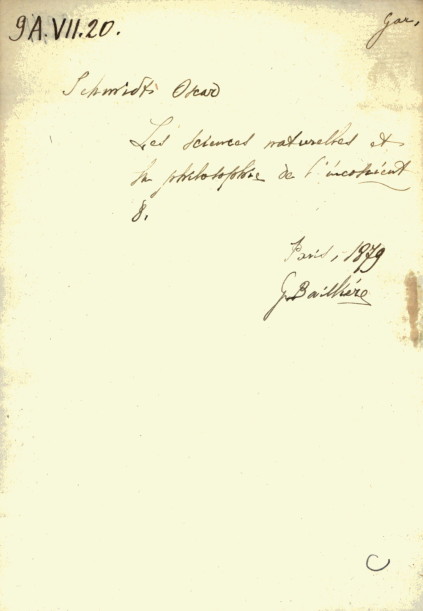 9A.VII.20.
Gar,
Schmidt Oscar
Les sciences naturelles et
la philosophie de l'inconscient
8.
Paris, 1879
G. Baillière
C